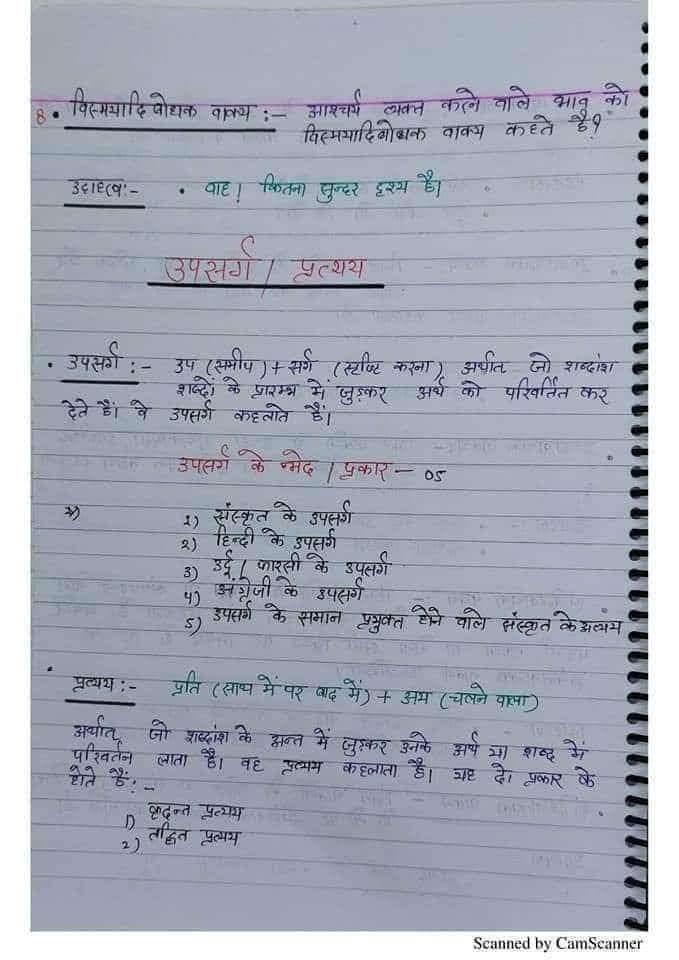 8. विस्मयादिबोधक वाक्य :- आश्चर्य व्यक्त करने वाले भाव को
विस्मयादिबोधक वाक्य कहते है?
उदाहरण:- • वाह। कितना सुन्दर दृश्य है।
उपसर्ग / प्रत्यय
• उपसर्ग :- उप (समीप) + सर्ग (सृष्टि करना) अर्थात जो शब्दांश
शब्दों के प्रारम्भ में जुड़कर अर्थ को परिवर्तित कर
देते हैं। वे उपसर्ग कहलाते हैं।
उपसर्ग के भेद / प्रकार - 05
1) संस्कृत के उपसर्ग
2) हिन्दी के उपसर्ग
3) उर्दू / फारसी के उपसर्ग
4) अंग्रेजी के उपसर्ग
5) उपसर्ग के समान प्रयुक्त होने वाले संस्कृत के अव्यय
• प्रत्यय :- प्रति (साथ में पर बाद में) + अय (चलने वाला)
अर्थात् जो शब्दांश के अन्त में जुड़कर उनके अर्थ या शब्द में
परिवर्तन लाता है। वह प्रत्यय कहलाता है। यह दो प्रकार के
होते हैं:-
1) कृदन्त प्रत्यय
2) तद्धित प्रत्यय
Scanned by CamScanner